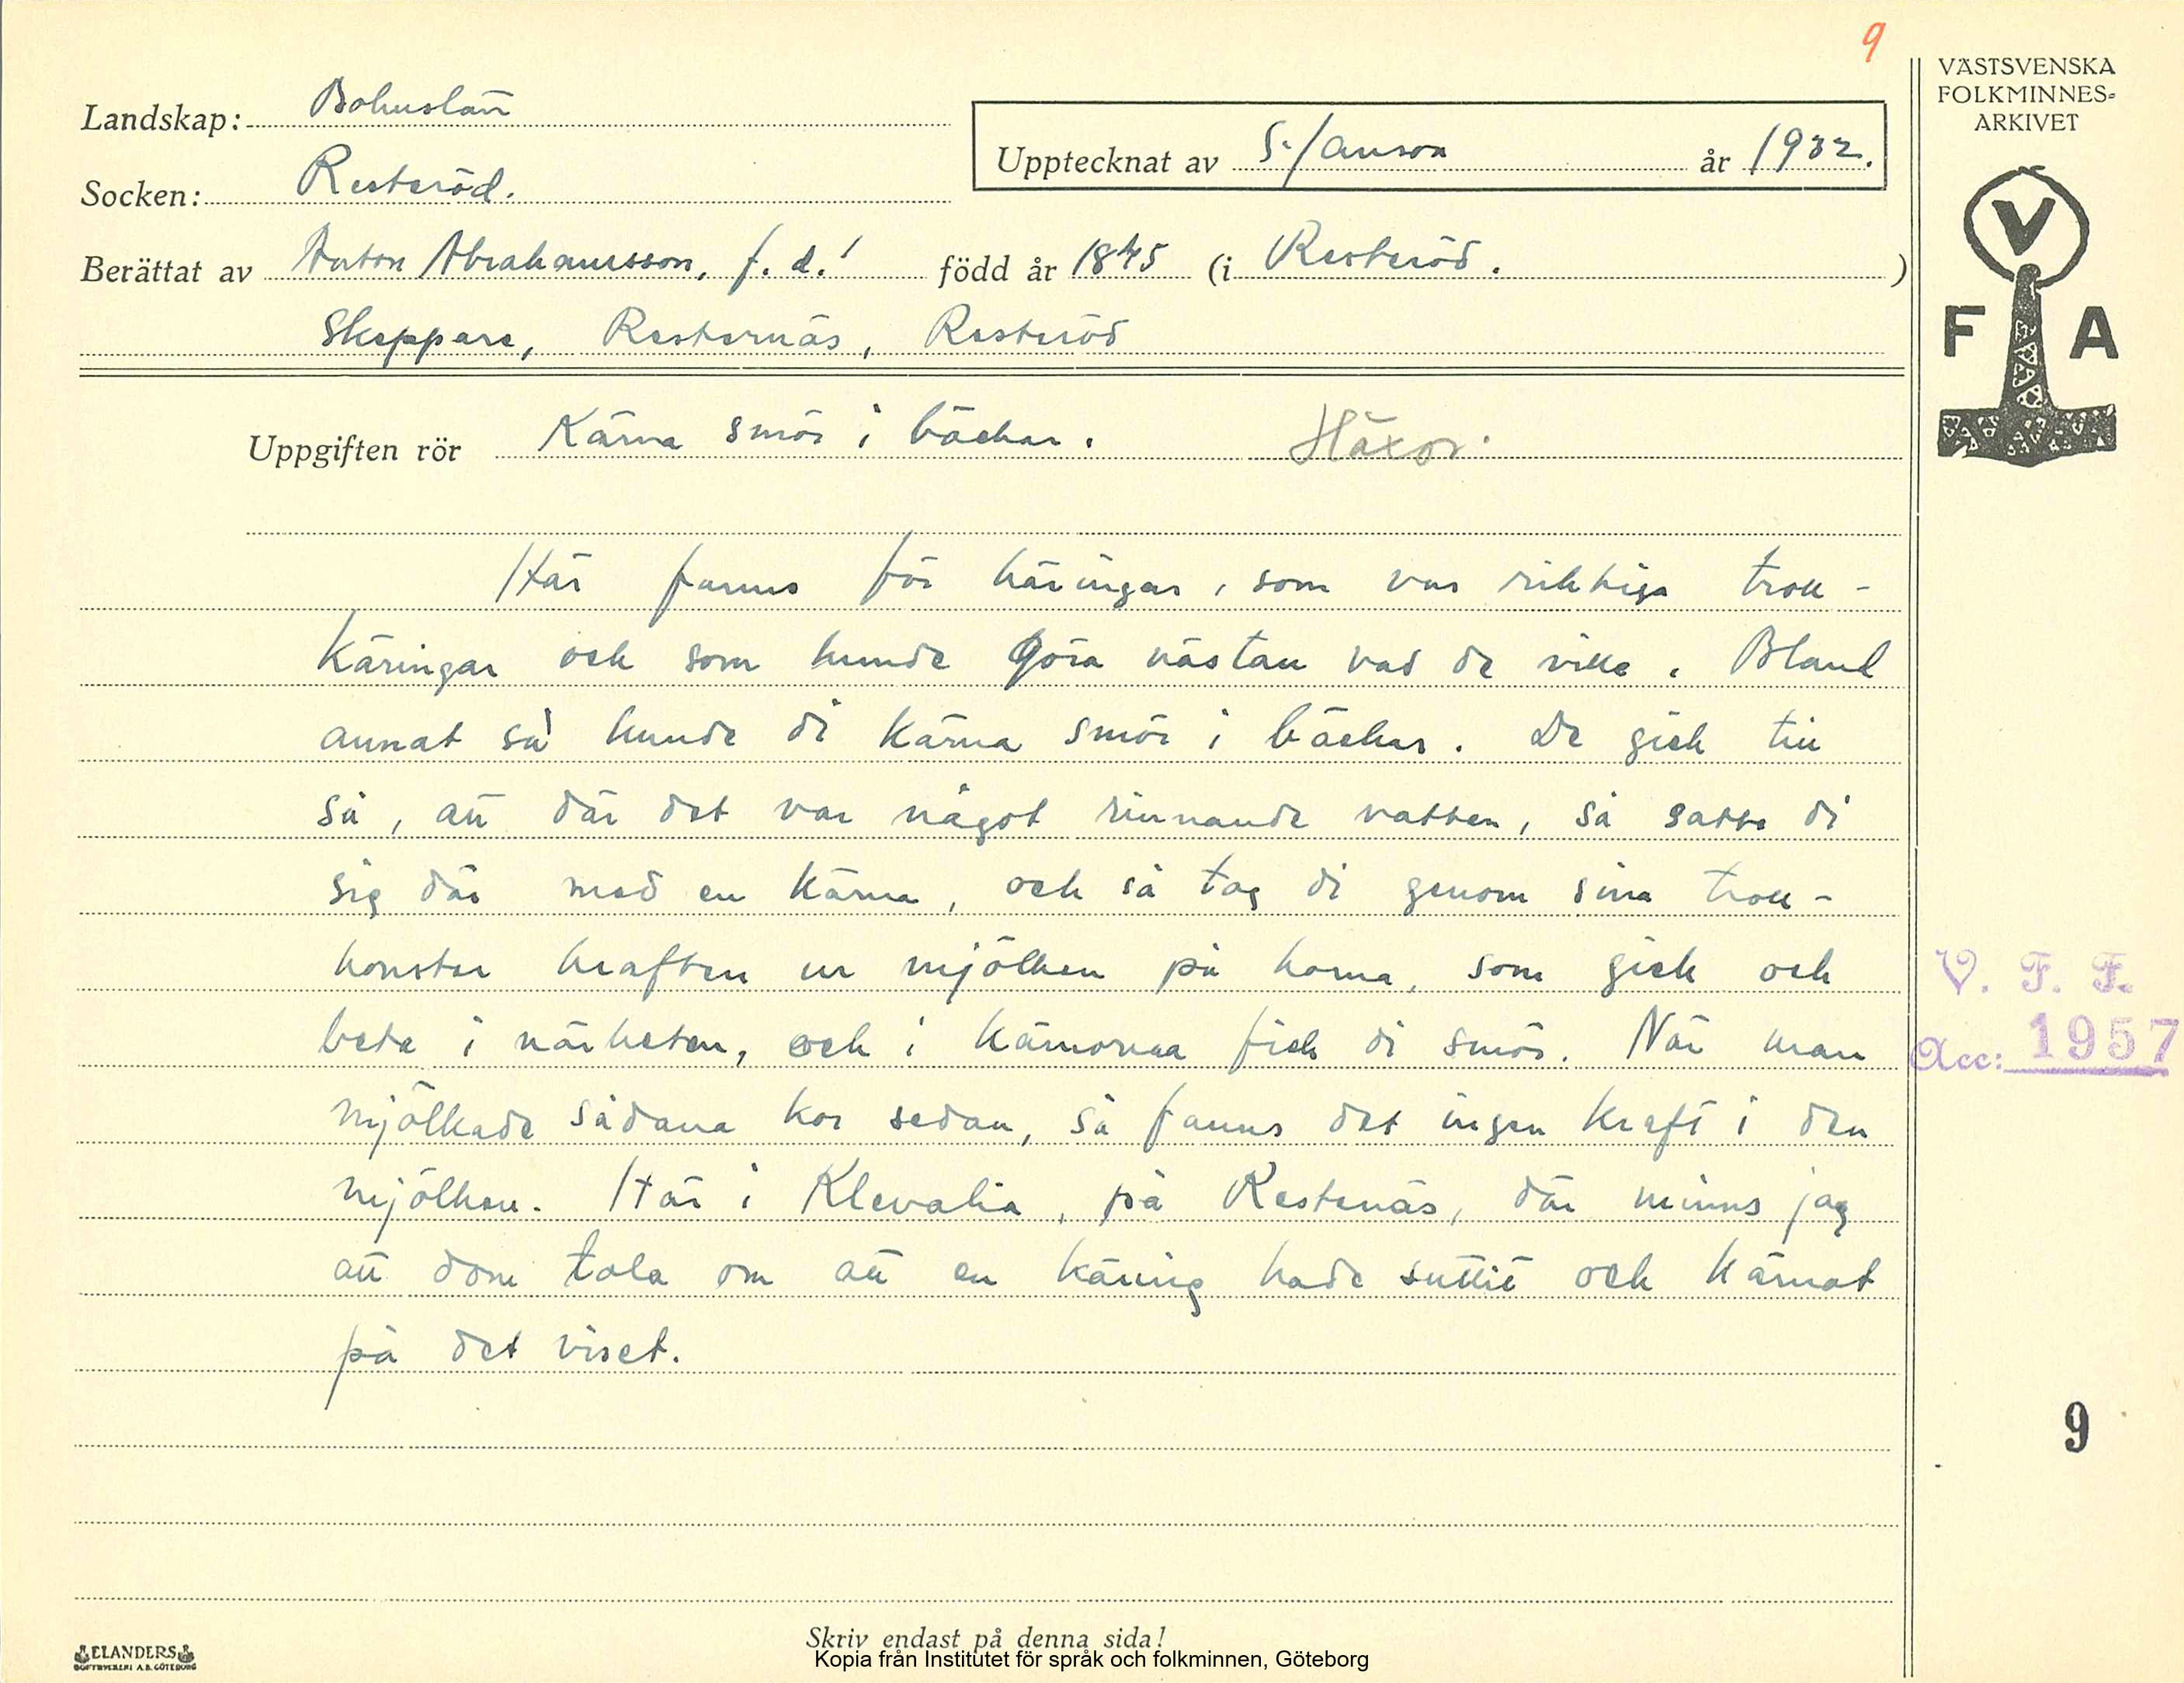 9
VÄSTSVENSKA
FOLKMINNES-
ARKIVET
Landskap: Bohuslän
Upptecknat av S. Janson år 1932.
Socken: Resteröd.
Berättat av Anton Abrahamsson, f. d. född år 1845 (i Resteröd.)
Skeppare, Restenäs, Resteröd
V
F A
Uppgiften rör Kärna smör i bäckar. Häxor.
Här fanns för käringar, som var riktiga troll-
käringar och som kunde göra nästan vad de ville. Bland
annat så kunde di kärna smör i bäckar. De gick till
så, att där det var något rinnande vatten, så satte di
sig där med en kärna, och så tog di genom sina troll-
konster kraften ur mjölken på korna, som gick och
bete i närheten, och i kärnorna fick di smör. När man
mjölkade sådana kor sedan, så fanns det ingen kraft i den
mjölken. Här i Klevalia, på Restenäs, där minns jag
att dom tola om att en käring hade suttit och kärnat
på det viset.
V. F. F.
Acc: 1957
9
Skriv endast på denna sida!
Kopia från Institutet för språk och folkminnen, Göteborg
ELANDERS
BOKTRYCKERI A.B. GÖTEBORG